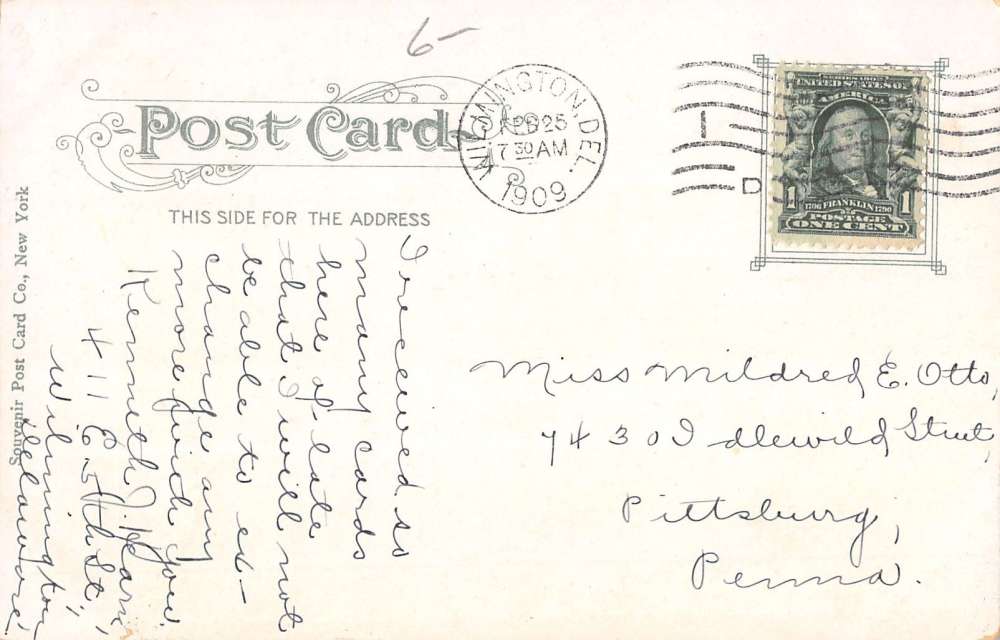 6-
Post Card
THIS SIDE FOR THE ADDRESS
WILMINGTON, DEL.
FEB 25
7 30 AM
1909
1
D
UNITED STATES OF
AMERICA
1706 FRANKLIN 1790
POSTAGE
1 ONE CENT 1
Souvenir Post Card Co., New York
I received so
many cards
here of late
that I will not
be able to ex-
change any
more with you.
Kenneth J.
411 E. 5th St.,
Wilmington,
Delaware.
Miss Mildred E. Otto,
7430 Idlewild Street,
Pittsburg,
Penna.